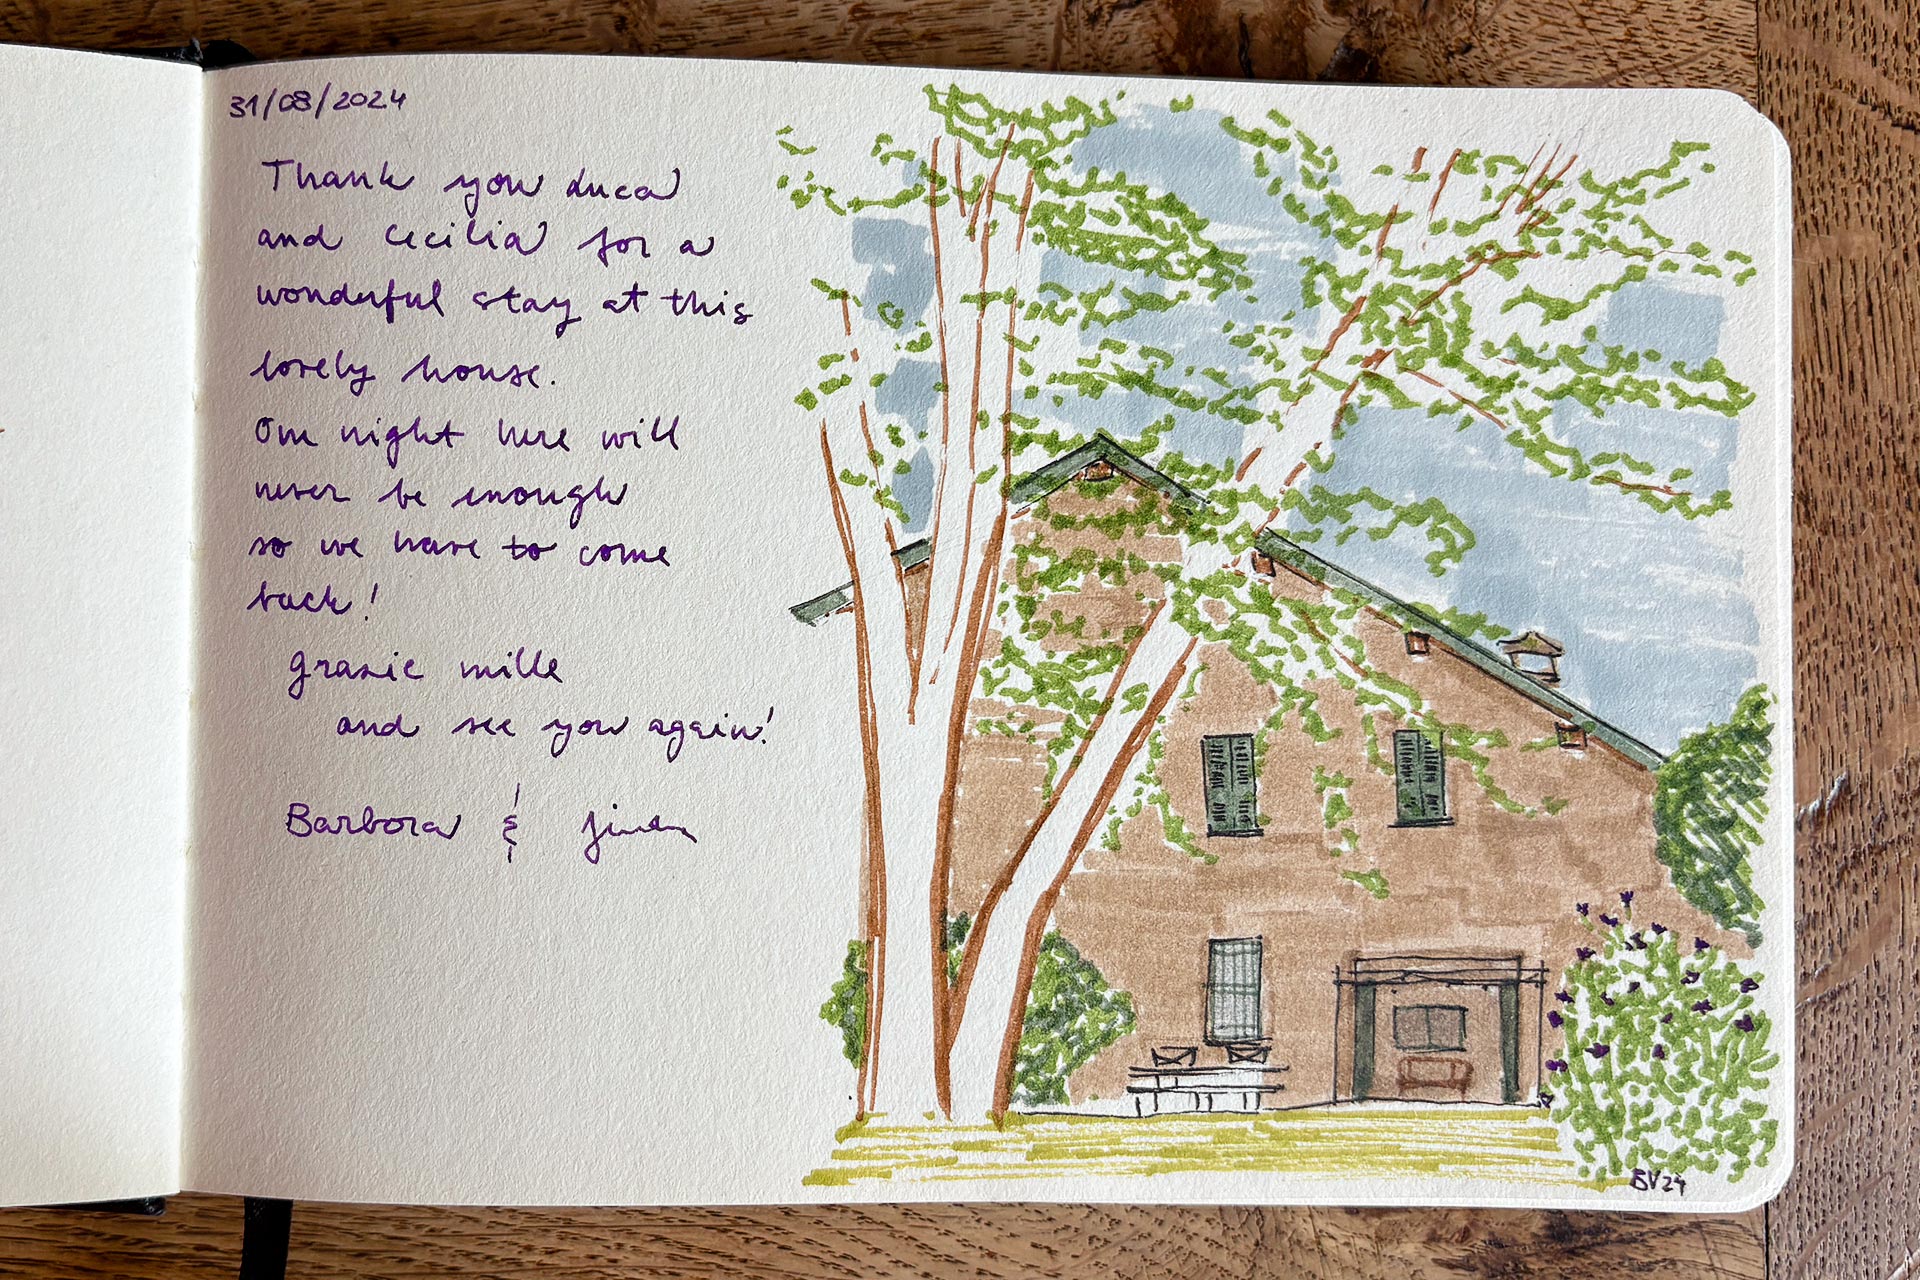 31/08/2024
Thank you Luca
and Cecilia for a
wonderful stay at this
lovely house.
One night here will
never be enough
so we have to come
back!
Grazie mille
and see you again!
Barbora &
BV24